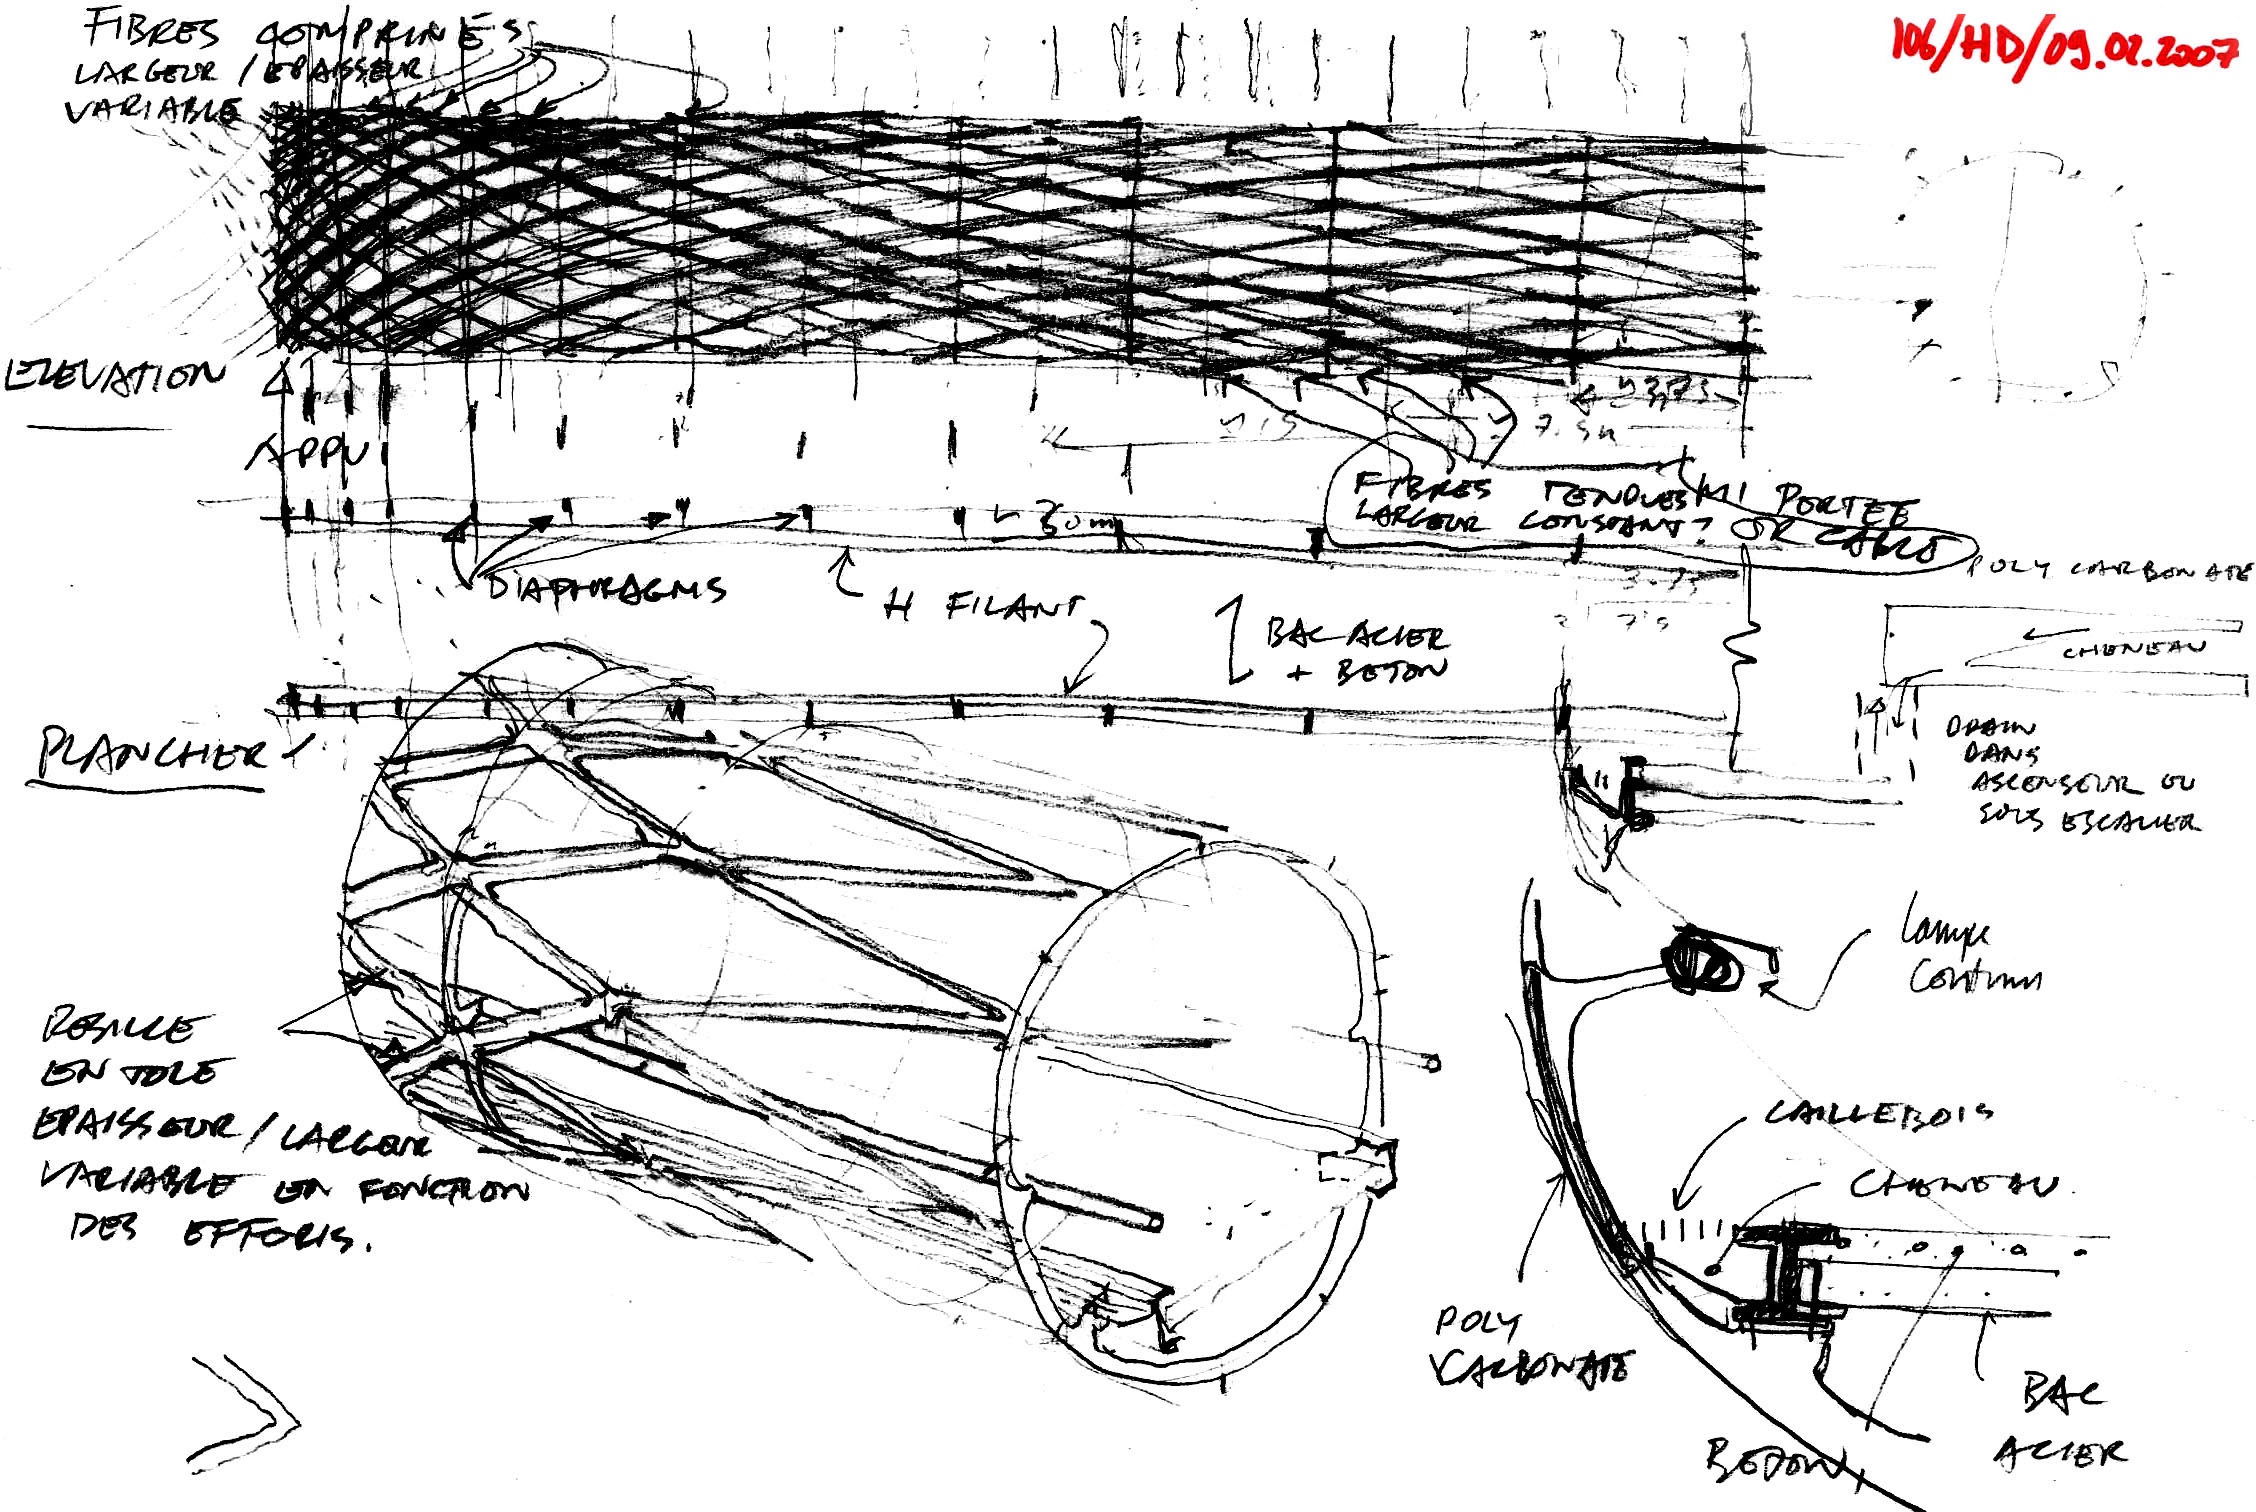 FIBRES COMPRIMÉS
LARGEUR / EPAISSEUR
VARIABLE
106/HD/09.02.2007
ELEVATION
APPUI
~3,75
7.5
7.5m
~30m
FIBRES TENDUES MI PORTEE
LARGEUR CONSTANT? OR CABLE
DIAPHRAGMS
H FILANT
BAC ACIER
+ BETON
3.75
7.5
POLYCARBONATE
CHENEAU
DRAIN
DANS
ASCENSEUR OU
SOUS ESCALIER
PLANCHER
RESILLE
EN TOLE
EPAISSEUR / LARGEUR
VARIABLE EN FONCTION
DES EFFORTS.
Lampe
Continu
CAILLEBOIS
CHENEAU
POLY
CARBONATE
BETON
BAC
ACIER